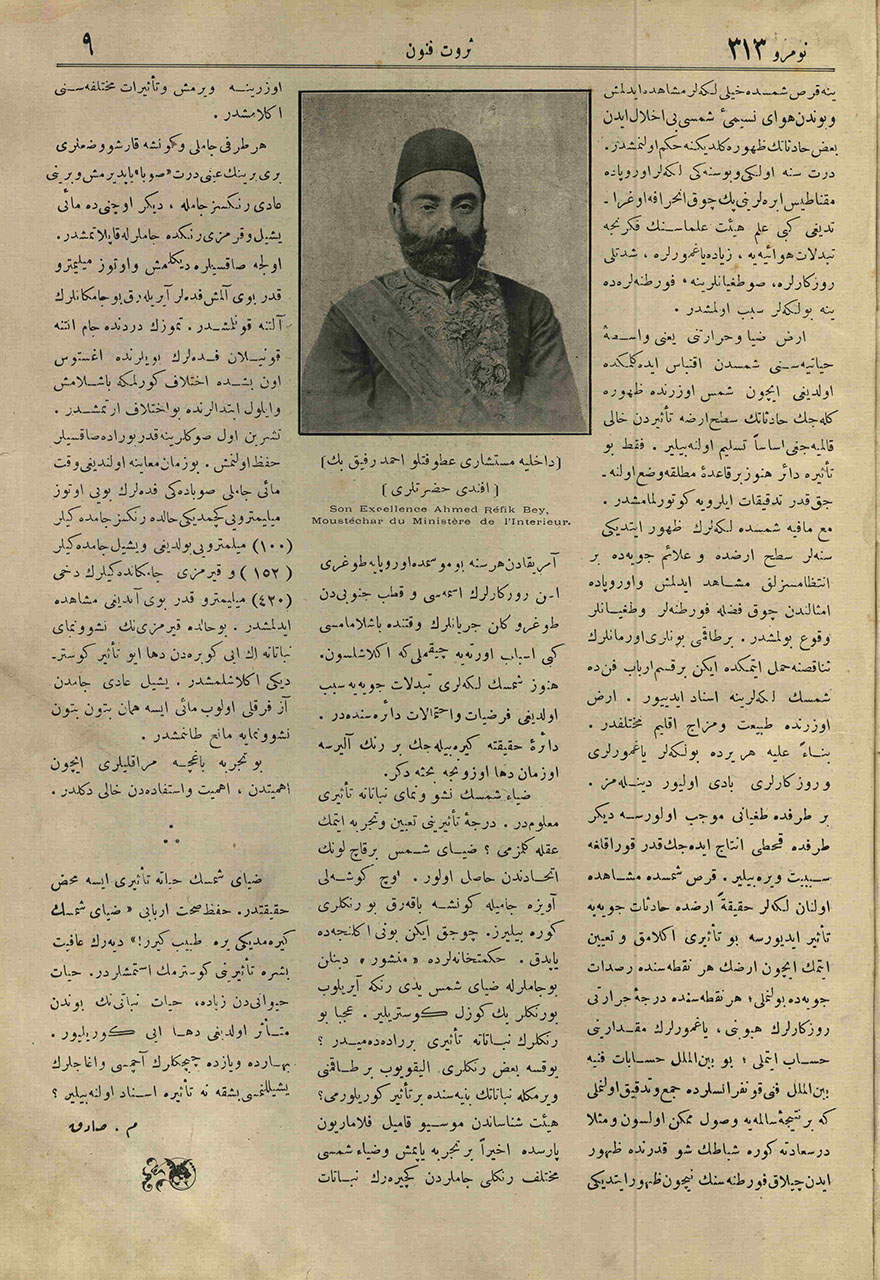 نومرو ٣١٣
ثروت فنون
٩
ینه قرص شمسده خیلی لکه‌لر مشاهده ایدلمش
و بوندن هوای نسیمیٔ شمسی‌یی اخلال ایدن
بعض حادثاتك ظهوره کلدیکنه حکم اولنمشدر.
درت سنه اولکی و بوسنه‌کی لکه‌لر اوروپاده
مقناطیس ابره‌لرینی پك چوق انحرافه اوغرا ـ
تدیغی کبی علم هیئت علماسنك فکرنجه
تبدلات هوائیه‌یه ، زیاده یاغمورلره ، شدتلی
روزکارلره، صو طغیانلرینه، فورطنه‌لره‌ده
ینه بولکه‌لر سبب اولمشدر.
ارض ضیا و حرارتنی یعنی واسطهٔ
حیاتیه‌سنی شمسدن اقتباس ایده‌کلمکده
اولدیغی ایچون شمس اوزرنده ظهوره
کله‌جك حادثاتك سطح ارضه تأثیردن خالی
قالمیه‌جغی اساساً تسلیم اولنه‌بیلیر . فقط بو
تأثیره دائر هنوز برقاعدهٔ مطلقه وضع اولنه ـ
جق قدر تدقیقات ایلرویه کوتورلمامشدر .
مع مافیه شمسده لکه‌لرك ظهور ایتدیکی
سنه‌لر سطح ارضده و علائم جویه‌ده بر
انتظامسزلق مشاهد ایدلمش و اوروپاده
امثالندن چوق فضله فورطنه‌لر و طغیانلر
وقوع بولمشدر. برطاقمی بونلری اورمانلرك
تناقصنه حمل ایتمکده ایکن برقسم ارباب فن‌ده
شمسك لکه‌لرینه اسناد ایدییور . ارض
اوزرنده طبیعت و مزاج اقلیم مختلفدر.
بناءً علیه هر یرده بولکه‌لر یاغمورلری
و روزکارلری بادی اولیور دینله‌مز .
بر طرفده طغیانی موجب اولورسه دیکر
طرفده قحطی انتاج ایده‌جك قدر قوراقلغه
سببیت ویره‌بیلیر. قرص شمسده مشاهده
اولنان لکه‌لر حقیقةً ارضده حادثات جویه‌یه
تأثیر ایدیورسه بو تأثیری اکلامق و تعیین
ایتمك ایچون ارضك هر نقطه‌سنده رصدات
جویه‌ده بولنملی؛ هر نقطه‌سنده درجهٔ حرارتی
روزکارلرك هبوبنی، یاغمورلرك مقدارینی
حساب ایتملی ؛ بو بین‌الملل حسابات فنیه
بین‌الملل فنی قونفرانسلرده جمع و تدقیق اولنملی
که بر نتیجهٔ سالمه‌یه وصول ممکن اولسون و مثلا
درسعادته کوره شباطك شو قدرنده ظهور
ایدن چیلاق فورطنه‌سنك نیچون ظهور ایتدیکی
(داخلیه مستشاری عطوفتلو احمد رفیق بك)
(افندی حضرتلری)
Son Excellence Ahmed Réfik Bey,
Moustéchar du Ministère de l'Interieur.
آمریقادن هر سنه بو موسمده اوروپایه طوغری
اسن روزکارلرك اسمه‌سی و قطب جنوبی‌دن
طوغرو کان جریانلرك وقتنده باشلامامسی
کبی اسباب اورته‌یه چیقملی که اکلاشلسون.
هنوز شمسك لکه‌لری تبدلات جویه‌یه سبب
اولدیغی فرضیات و احتمالات دائره‌سنده‌در .
دائرهٔ حقیقته کیره‌بیله‌جك بر رنك آلیرسه
اوزمان دها اوزونجه بحثه دکر.
ضیاء شمسك نشو و نمای نباتانه تأثیری
معلومدر . درجهٔ تأثیرینی تعیین و تجربه ایتمك
عقله کلزمی ؟ ضیای شمس برقاچ لونك
اتحادندن حاصل اولور . اوچ کوشه‌لی
آویزه جامیله کونشه باقه‌رق بو رنکلری
کوره بیلیرز. چوجق ایکن بونی اکلنجه‌ده
یاپدق . حکمتخانه‌لرده «منشور» دینلن
بوجاملرله ضیای شمس یدی رنکه آیریلوب
بورنکلر پك کوزل کوستریلیر . عجبا بو
رنکلرك نباتاته تأثیری برراده‌ده‌میدر ؟
یوقسه بعض رنکلری الیقویوب بر طاقمنی
ویرمکله نباتاتك بنیه‌سنده بر تأثیر کوریلورمی؟
هیئت شناساندن موسیو قامیل فلاماریون
پارسده اخیراً بر تجربه یاپمش وضیاء شمسی
مختلف رنکلی جاملردن کچیره‌رك نباتات
اوزرینه ویرمش و تأثیرات مختلفه‌سنی
اکلامشدر.
هر طرفی جاملی و کونشه قارشو وضعلری
بری برینك عینی درت «صوبا» یاپدیرمش و برینی
عادی رنکسز جامله ، دیکر اوچنی ده مائی
یشیل و قرمزی رنکده جاملرله قاپلاتمشدر.
اولجه صاقسیلره دیکلمش و اوتوز میلیمترو
قدر بوی آلمش فده‌لر آیریله‌رق بو جامکانلرك
آلتنه قونلمشدر . تموزك دردنده جام التنه
قونیلان فده‌لرك بویلرنده اغستوس
اون بشده اختلاف کورلمکه باشلامش
وایلول ابتدالرنده بو اختلاف ارتمشدر .
تشرین اول صوکلرینه قدر بوراده صاقسیلر
حفظ اولنمش . بو زمان معاینه اولندیغی وقت
مائی جاملی صوباده‌کی فده‌لرك بویی اوتوز
میلیمترویی کچمدیکی حالده رنکسز جامده کیلر
(١٠٠) میلمترویی بولدیغی و یشیل جامده‌کیلر
(١٥٢) و قیرمزی جامکانده‌کیلرك دخی
(٤٢٠) میلیمترو قدر بوی آلدیغی مشاهده
ایدلمشدر . بوحالده قیرمزی‌نك نشوونمای
نباتاته اك ایی کوبره‌دن دها ایو تأثیر کوستر ـ
دیکی اکلاشلمشدر . یشیل عادی جامدن
آز فرقلی اولوب مائی ایسه همان بتون بتون
نشوونمایه مانع طانمشدر .
بو تجربه باغچه مراقلیلری ایچون
اهمیتدن ، اهمیت و استفاده‌دن خالی دکلدر.
ضیای شمسك حیاته تأثیری ایسه محض
حقیقتدر. حفظ صحت اربابی « ضیای شمسك
کیره‌مدیکی یره طبیب کیرر!» دیه‌رك عافیت
بشره تأثیرینی کوسترمك استمشلردر. حیات
حیوانی‌دن زیاده، حیات نباتی‌نك بوندن
متأثر اولدیغی دها ایی کوریلیور .
بهارده و یازده چیچکلرك آچمسی و اغاجلرك
یشیللنمسی بشقه نه تأثیره اسناد اولنه‌بیلیر ؟
م . صادق